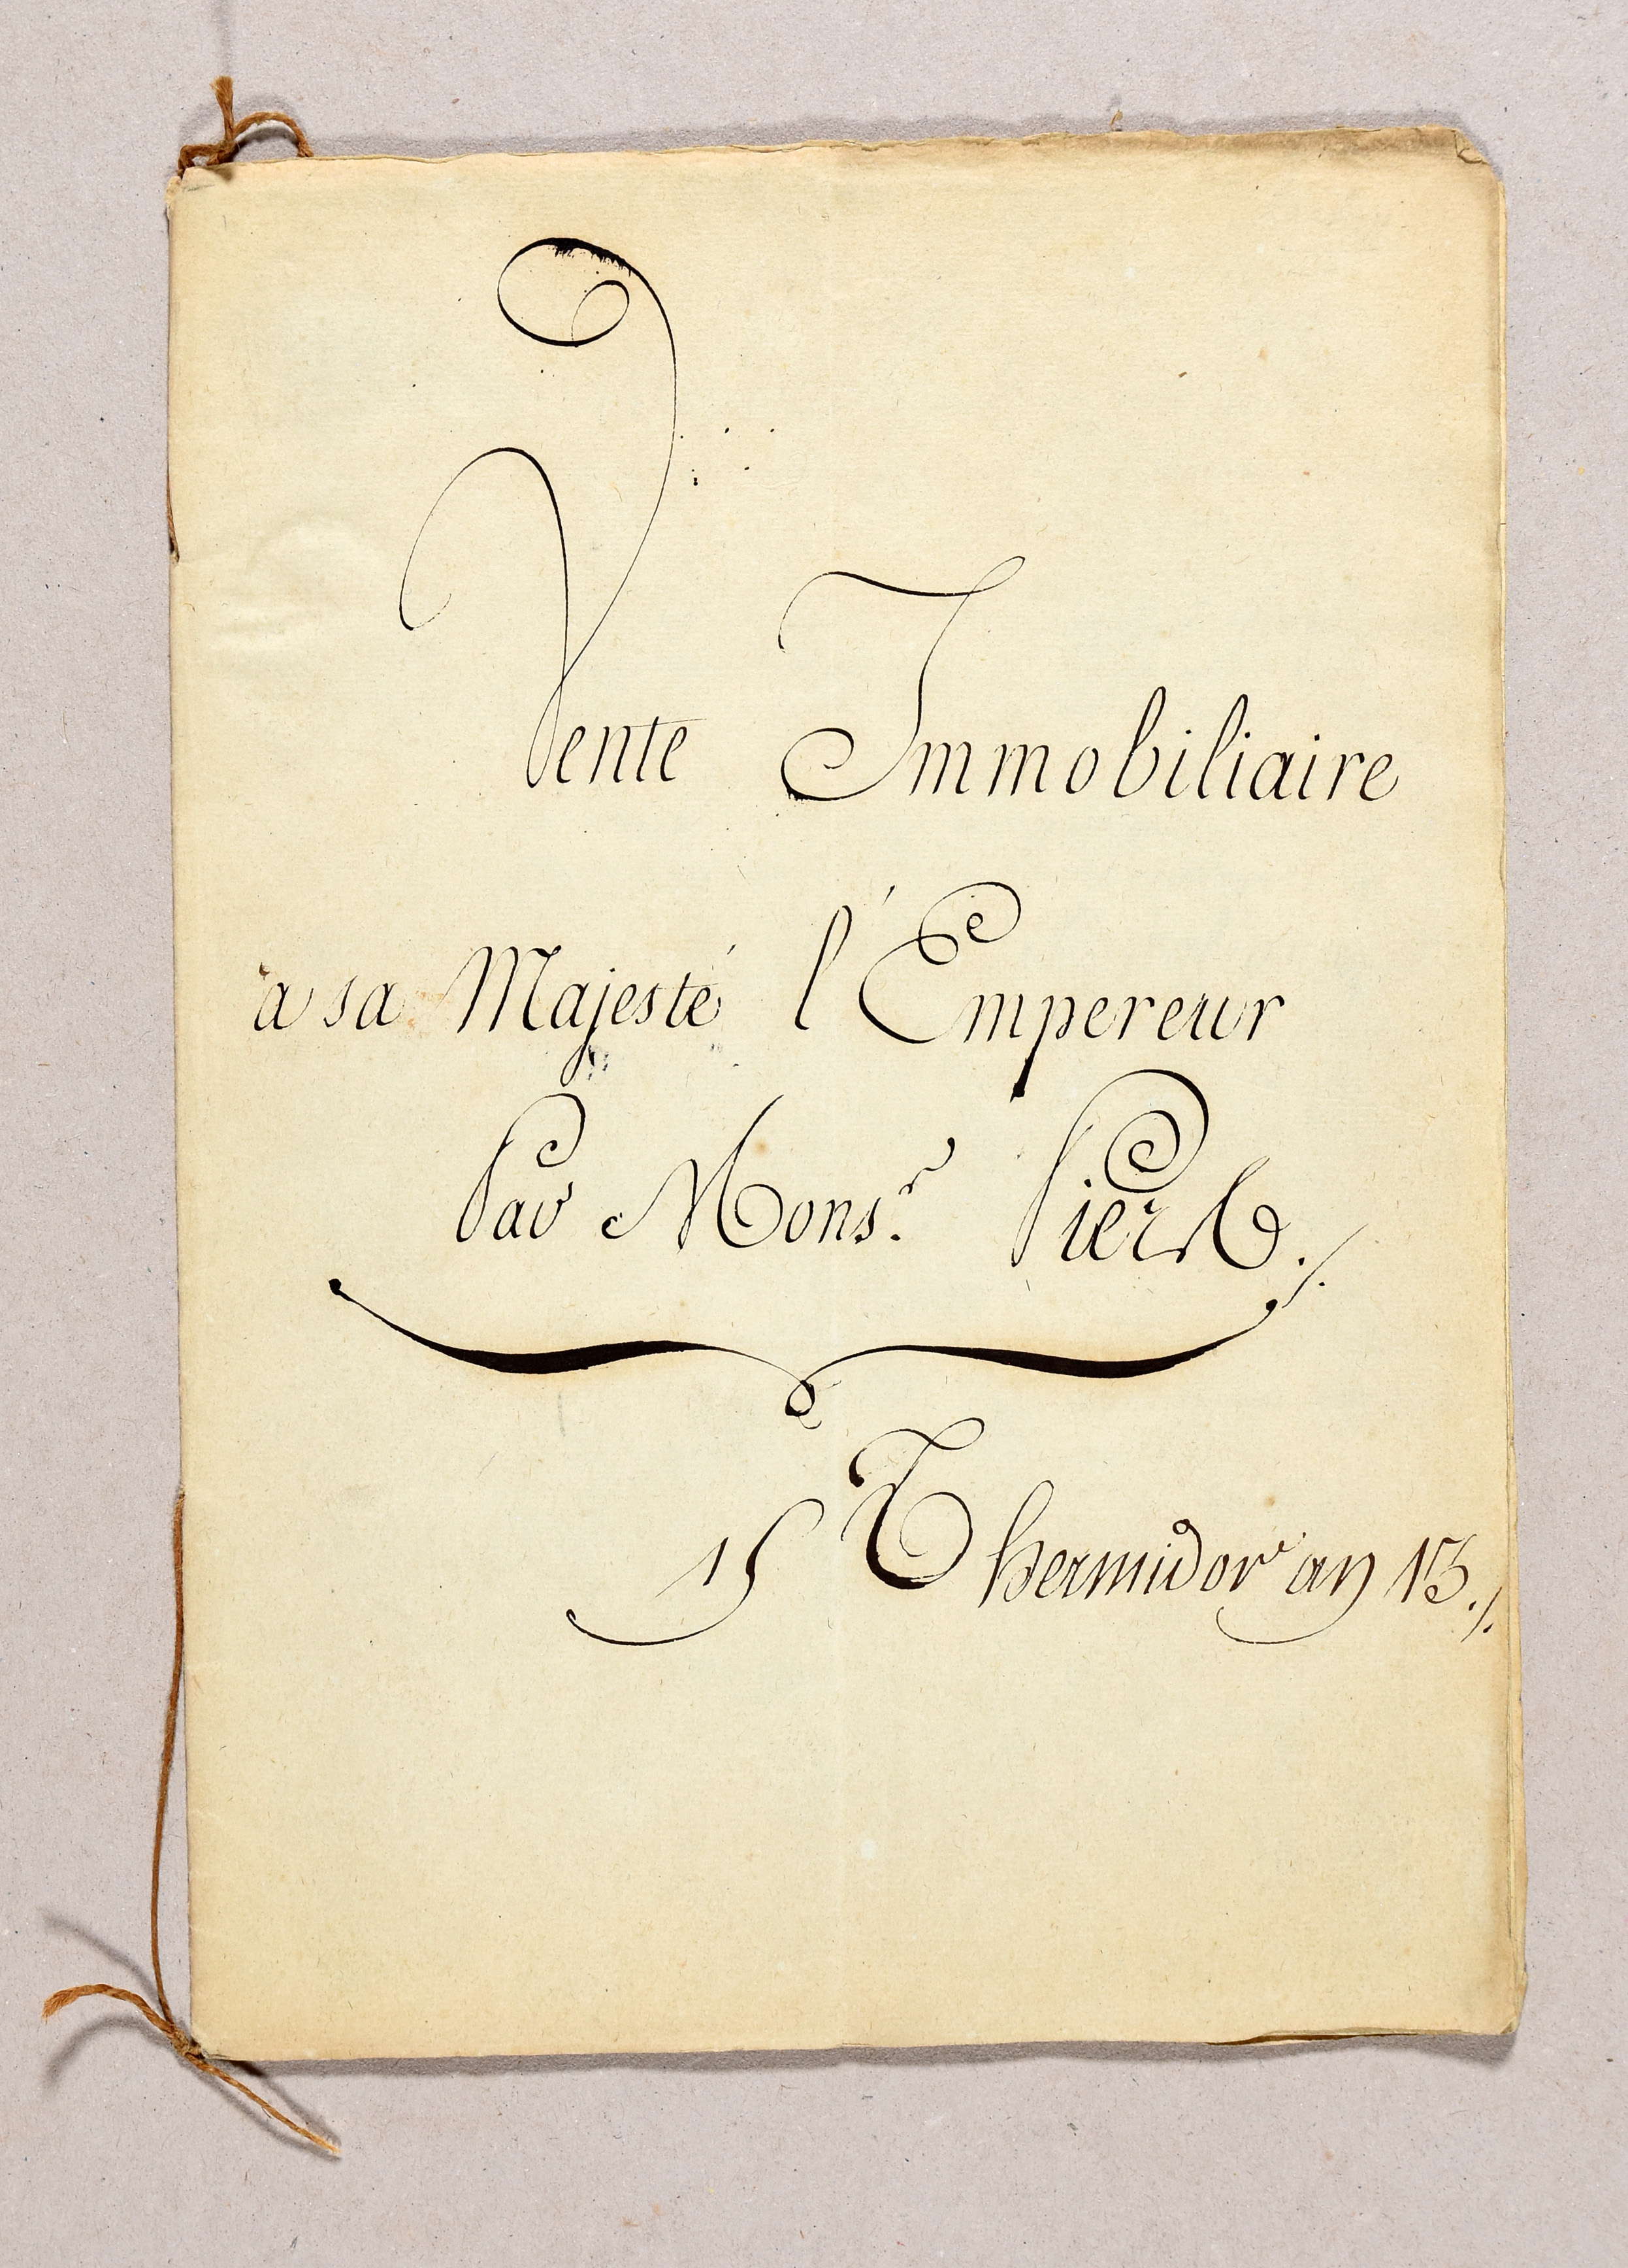 Vente Immobiliaire
à sa Majesté l'Empereur
Par Mons.r
15 Thermidor an 13./.